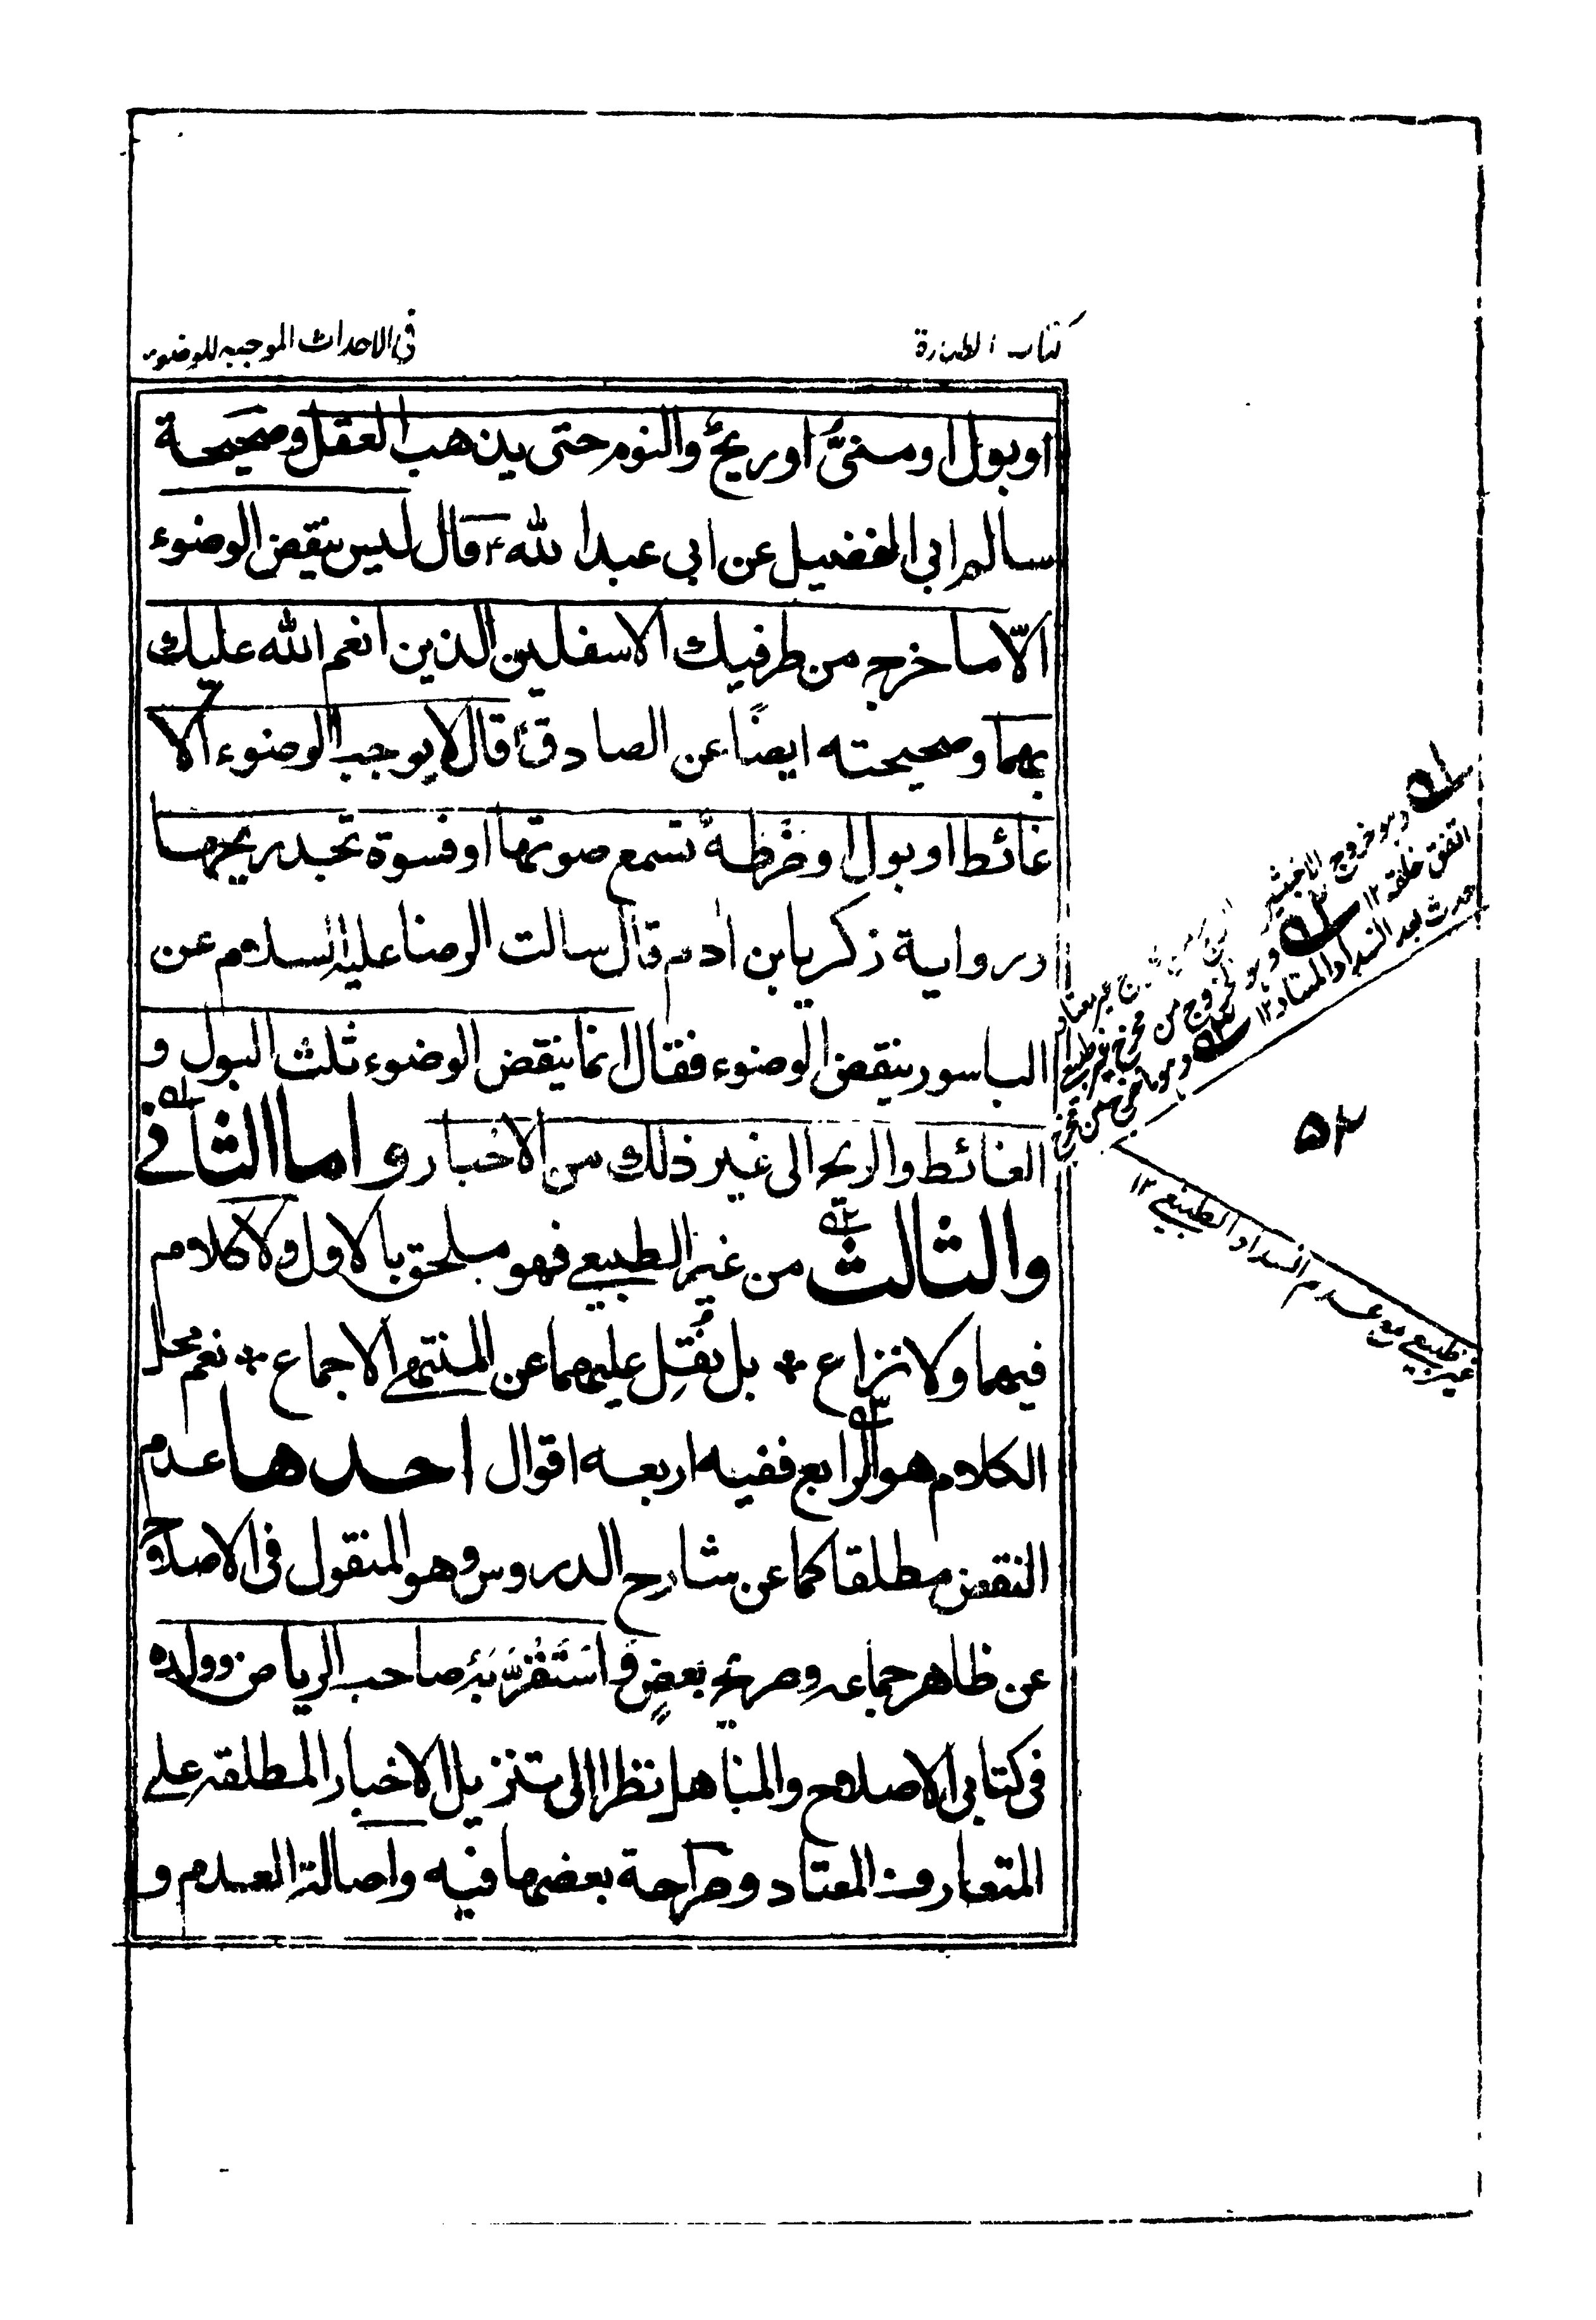 كتاب الطهارة
في الاحداث الموجبه للوضوء
او بول او منيٌّ او ريحٌ والنوم حتى يذهب العقل وصحيحة
سالم ابي الفضيل عن ابي عبد الله ع قال ليس ينقض الوضوء
الّا ما خرج من طرفيك الاسفلين الذين انعم الله عليك
بهما وصحيحته ايضًا عن الصادق ع قال لا يوجب الوضوء الا
غائط او بول او ضَرْطَةٌ تسمع صوتها او فسوة تجد ريحها
ورواية ذكريا بن ادم قال سالت الرضا عليه السلام عن
الباسور ينقض الوضوء فقال انما ينقض الوضوء ثلث البول و
الغائط والريح الى غير ذلك من الاخبار واما الثاني
والثالث من غير الطبيعي فهو ملحق بالاول ولا كلام
فيهما ولا نزاع * بل نُقِل عليهما عن المنتهى الاجماع * نعم محل
الكلام هو الرابع ففيه اربعه اقوال احدها عدم
النقض مطلقا كما عن شارح الدروس وهو المنقول في الاصلاح
عن ظاهر جماعه وصريح بعضٍ وَاسْتَقْرَبَه صاحب الرياض وولده
في كتابي الاصلاح والمناهل نظرا الى تنزيل الاخبار المطلقه على
المتعارف المعتاد وصراحة بعضها فيه واصالة العدم و
۵۱ وهو خروج الاخبثين
اتفق خلقه ۱۲ ۵۲ وهو الخروج من مخرج غير طبيعي
حدث بعد انسداد المعتاد ۱۲ ۵۳ وهو ما خرج من مخرج
غير طبيعي مع عدم انسداد الطبيعي ۱۲
۵۲